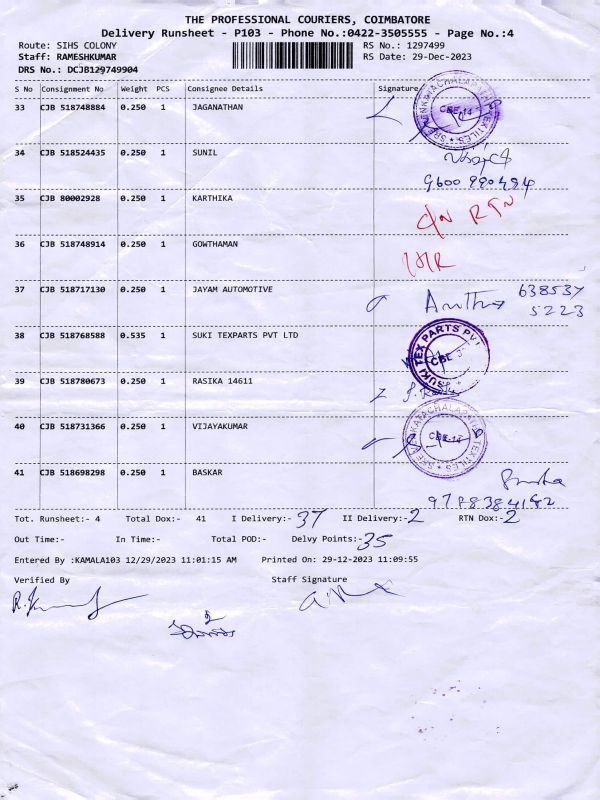 THE PROFESSIONAL COURIERS, COIMBATORE
Delivery Runsheet - P103 - Phone No.:0422-3505555 - Page No.:4
Route: SIHS COLONY RS No.: 1297499
Staff: RAMESHKUMAR RS Date: 29-Dec-2023
DRS No.: DCJB129749904
S No Consignment No Weight PCS Consignee Details Signature
33 CJB 518748884 0.250 1 JAGANATHAN
CBE-14
TEXTILES
34 CJB 518524435 0.250 1 SUNIL
35 CJB 80002928 0.250 1 KARTHIKA
C/N RTN
36 CJB 518748914 0.250 1 GOWTHAMAN
37 CJB 518717130 0.250 1 JAYAM AUTOMOTIVE
638537
5223
38 CJB 518768588 0.535 1 SUKI TEXPARTS PVT LTD
SUKI TEX PARTS PVT
CBE
39 CJB 518780673 0.250 1 RASIKA 14611
40 CJB 518731366 0.250 1 VIJAYAKUMAR
CBE-14
TEXTILES
41 CJB 518698298 0.250 1 BASKAR
Tot. Runsheet:- 4 Total Dox:- 41 I Delivery:- 37 II Delivery:- 2 RTN Dox:- 2
Out Time:- In Time:- Total POD:- Delvy Points:- 35
Entered By :KAMALA103 12/29/2023 11:01:15 AM Printed On: 29-12-2023 11:09:55
Verified By Staff Signature